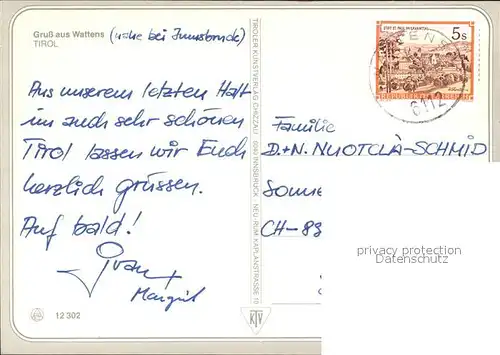 Gruß aus Wattens (nahe bei Innsbruck)
TIROL
Aus unserem letzten Halt
im auch sehr schönen
Tirol lassen wir Euch
herzlich grüssen.
Auf bald!
Ivan +
Margrit
12 302
TIROLER KUNSTVERLAG CHIZZALI · 6020 INNSBRUCK · NEU-RUM KAPLANSTRASSE
KTV
5s
REPUBLIK
6112
Familie
D.+N. NUOTCLÀ-SCHMID
Sonne
CH-83
privacy protection
Datenschutz